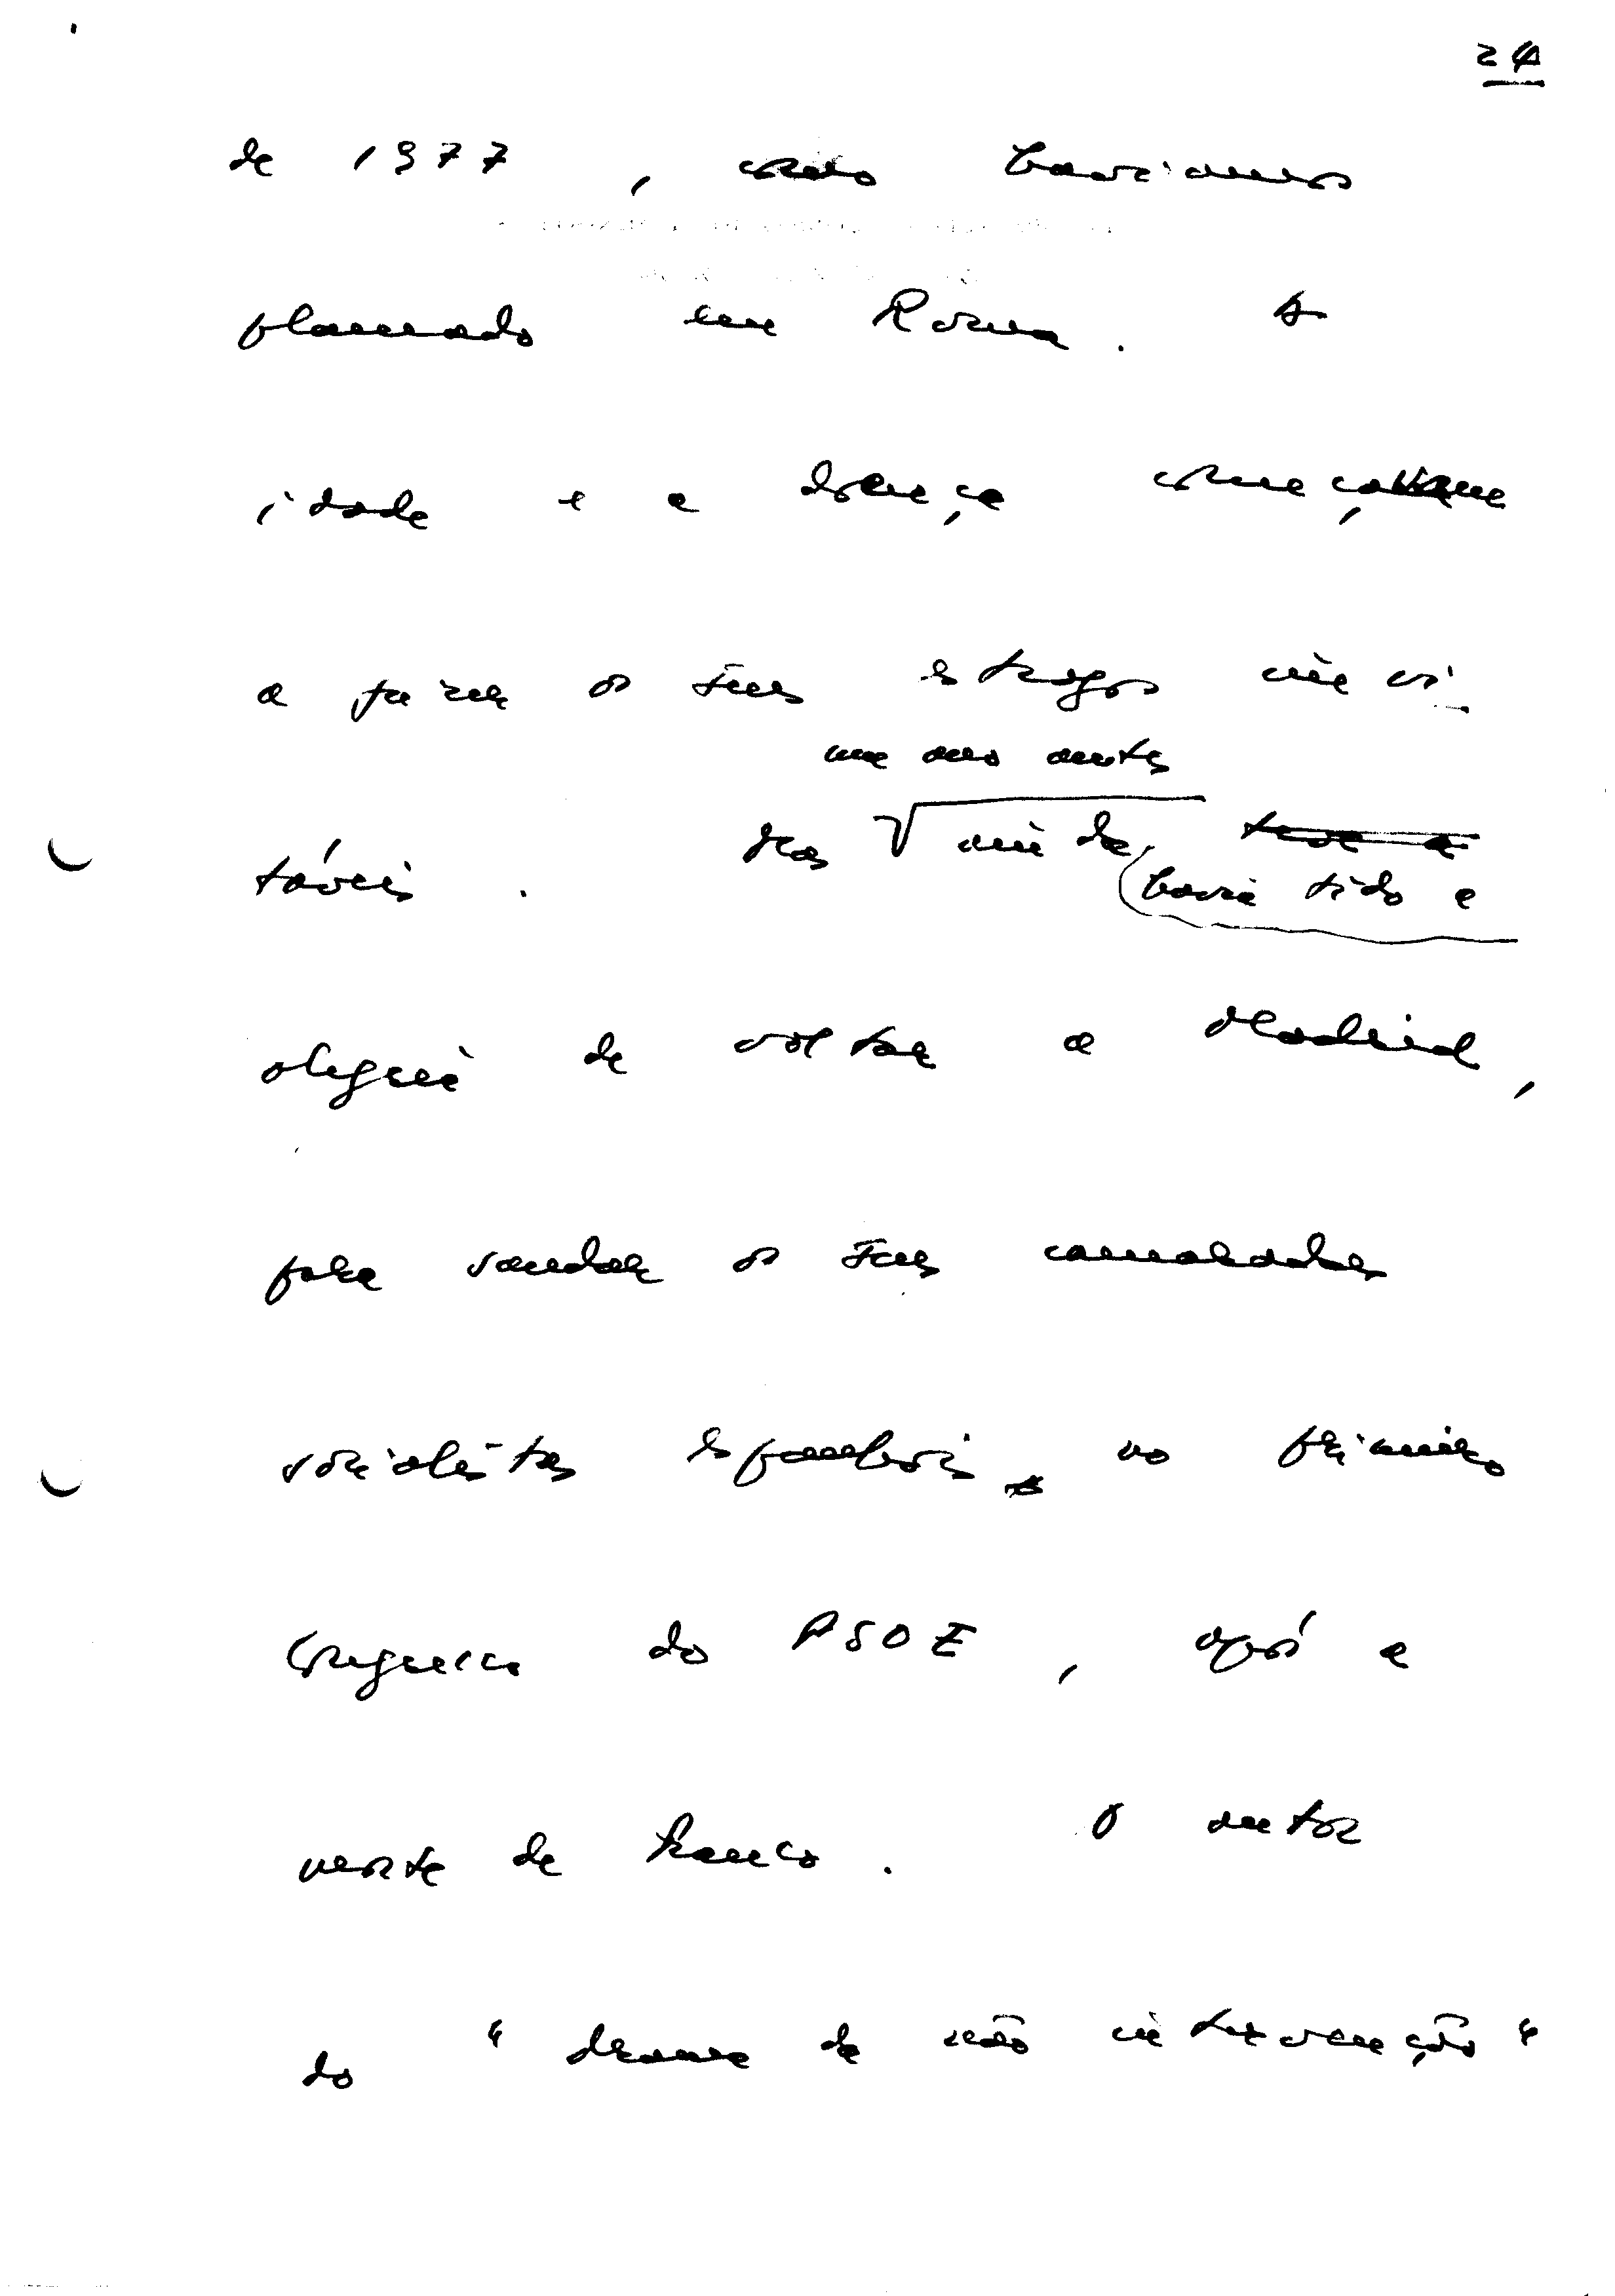 24
de 1977, como havíamos
planeado em Roma. A
idade e a doença começavam
a fazer os seus estragos inevi-
um ano antes
táveis. Mas ainda, teve a
havia tido a
alegria de voltar a Madrid,
para saudar os seus camaradas
socialistas espanhóis, no primeiro
Congresso do PSOE, após a
morte de Franco. O autor
do "drama da não intervenção"